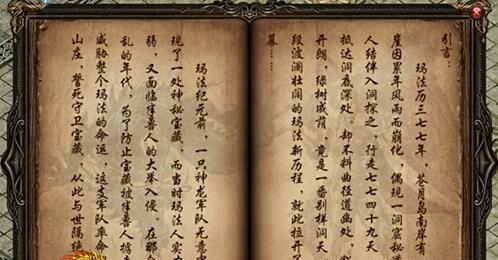 引言：
玛法历三七七年，苍月岛南岸有
崖因累年风雨而崩化，偶现一洞窟秘道
人结伴入洞探之，行走七七四十九天
抵达洞底深处。却不料曲径通幽处，
开朗，绿树成荫，竟是一番别样洞天
段波澜壮阔的玛法新历程，就此拉开了
幕……
玛法纪元前，一只神龙军队无意
现了一处神秘宝藏，而当时玛法人实
弱，又面临半兽人的大举入侵。在那
乱的年代，为了防止宝藏被半兽人掳
威胁整个玛法的命运，这支军队率命
山庄，誓死守卫宝藏，从此与世隔绝